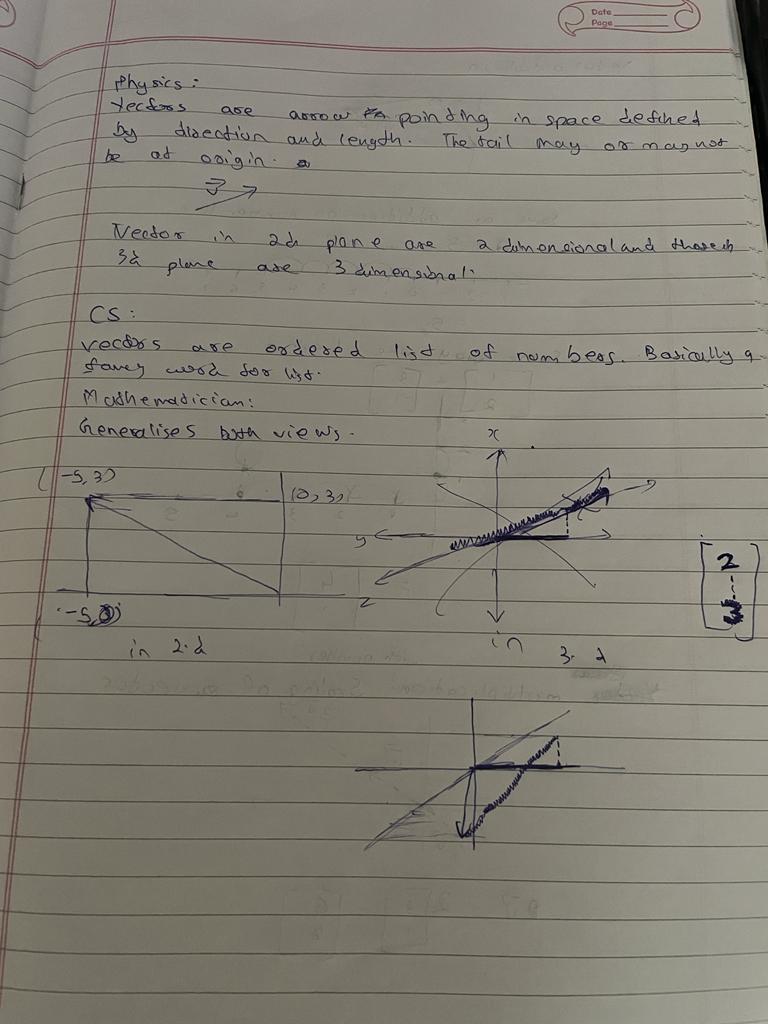 Date
Page
Physics:
Vectors are arrow pointing in space defined
by direction and length. The tail may or may not
be at origin.
Vector in 2d plane are 2 dimensional and those in
3d plane are 3 dimensional.
CS:
vectors are ordered list of numbers. Basically a
fancy word for list.
Mathematician:
Generalises both views.
x
(-5, 3)
(0, 3)
y
z
2
3
-5, 0
in 2.d
in 3. d